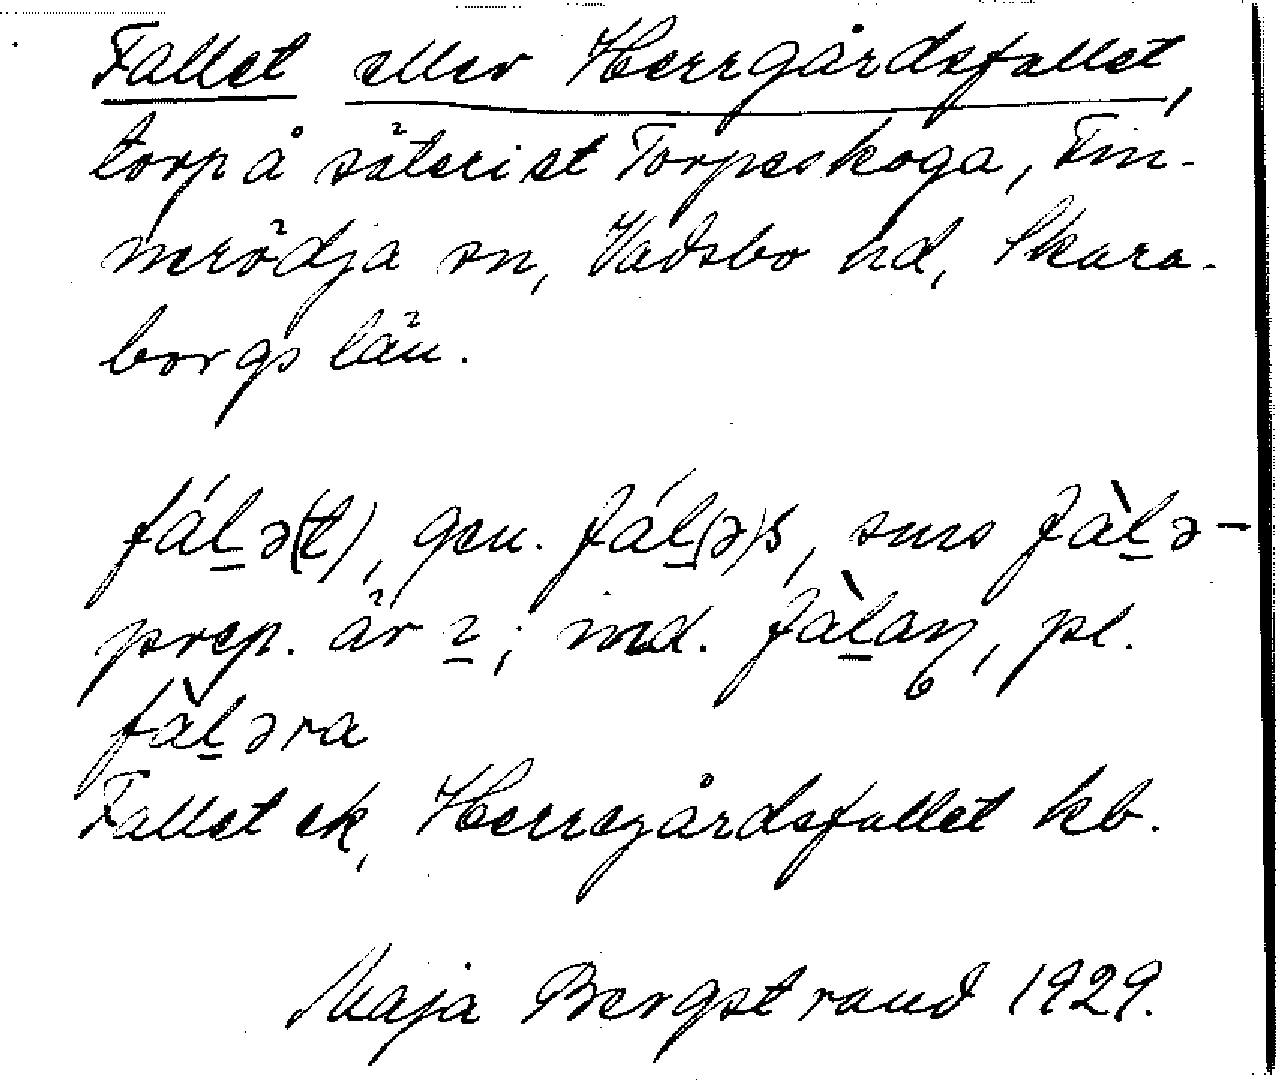 Fallet eller Herrgårdsfallet,
torp å säteriet Torpeskoga, Fin-
nerödja sn, Vadsbo hd, Skara-
borgs län.
fál̲ə(t), gen. fál̲(ə)s, sms fàl̲ə-
prep. är ı̲; ind. fàl̲aņ, pl.
fàl̲əra
Fallet ek, Herregårdsfallet kb.
Maja Bergstrand 1929.